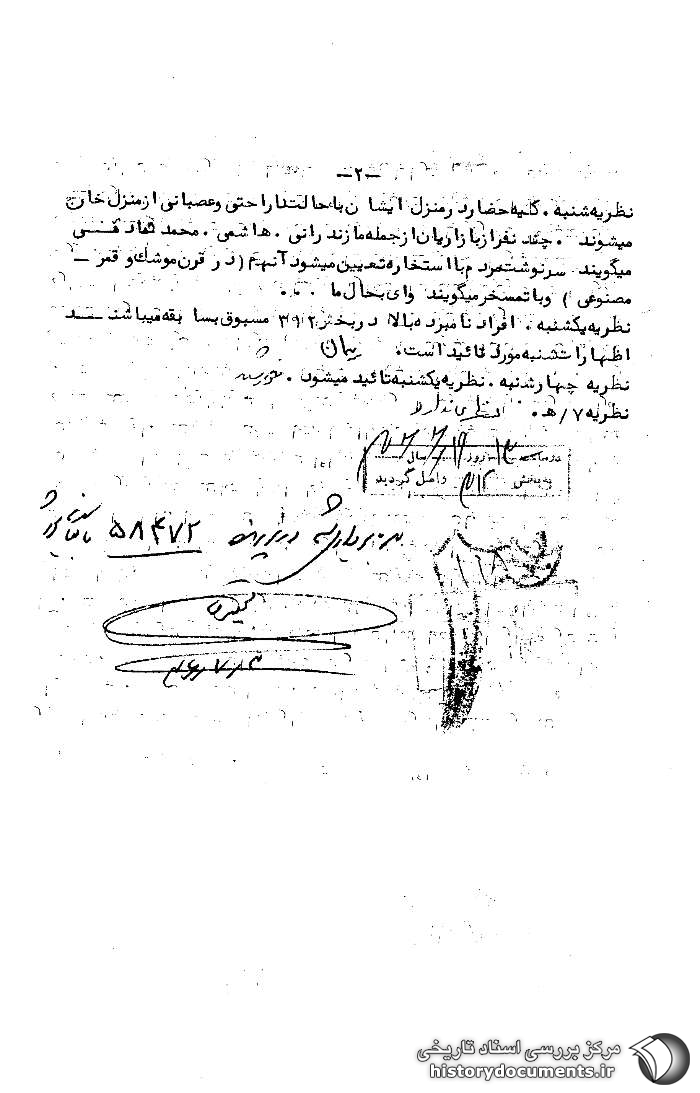 -۲-
نظریه شنبه . کلیه حضار در منزل ایشان با حالت ناراحتی و عصبانی از منزل خارج
میشوند . چند نفر از بازاریان از جمله مازندرانی . هاشمی . محمد قناد قمی
میگویند سرنوشت مردم با استخاره تعیین میشود آنهم (در قرن موشک و قمر ـ
مصنوعی ) و با تمسخر میگویند وای بحال ما ...
نظریه یکشنبه . افراد نامبرده بالا در بخش ۳۱۲ مسبوق بسابقه میباشند
اظهارات شنبه مورد تائید است . پیمان
نظریه چهارشنبه . نظریه یکشنبه تائید میشود .
نظریه ۷/ه . نظری ندارد
در ساعت روز سال
به بخش ۳۱۲ واصل گردید
در پرونده ۵۸۴۷۲
مرکز بررسی اسناد تاریخی
historydocuments.ir